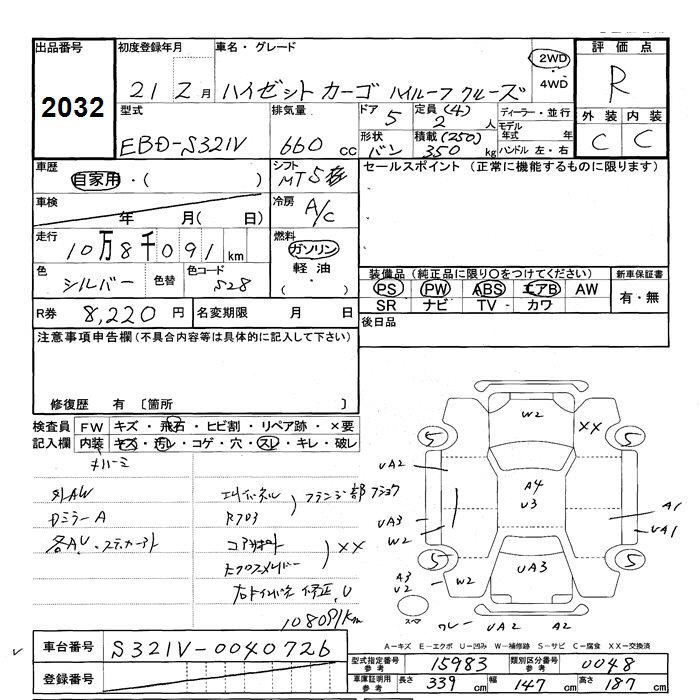 出品番号 初度登録年月 車名・グレード 評価点
2032 21 2月 ハイゼット カーゴ ハイルーフ クルーズ 2WD ・ 4WD R
型式 排気量 ドア 5 定員 (4) 2 人 ディーラー・並行 外装 内装
EBD-S321V 660 cc 形状 バン 積載 (250) 350 kg モデル年式 年 ハンドル 左・右 C C
車歴 自家用・( ) シフト MT5 セールスポイント (正常に機能するものに限ります)
車検 年 月( 日) 冷房 A/C
走行 10万8千091km 燃料 ガソリン
軽油
( ・ )
色 シルバー 色替 色コード S28
装備品(純正品に限り○をつけてください) 新車保証書
PS PW ABS エアB AW 有・無
SR ナビ TV・ カワ
R券 8,220円 名変期限 月 日 後日品
注意事項申告欄(不具合内容等は具体的に記入して下さい)
修復歴 有 〔箇所 〕
検査員 FW キズ・飛石・ヒビ割・リペア跡・×要
記入欄 内装 キズ・汚レ・コゲ・穴・スレ・キレ・破レ
外AW
DミラーA
各AU・ステッカー
フランジ部
XX
修正、U
108091km
W2 XX
5 5
UA2 A4
U3
UA3 A1
W2 UA1
5 5
A3 W2 UA3
U2
スペア UA2 A2
A-キズ E-エクボ U-凹み W-補修跡 S-サビ C-腐食 XX-交換済
車台番号 S321V-0040726
登録番号
型式指定番号参考 15983 類別区分番号参考 0048
車庫証明用参考 長さ 339 cm 幅 147 cm 高さ 187 cm